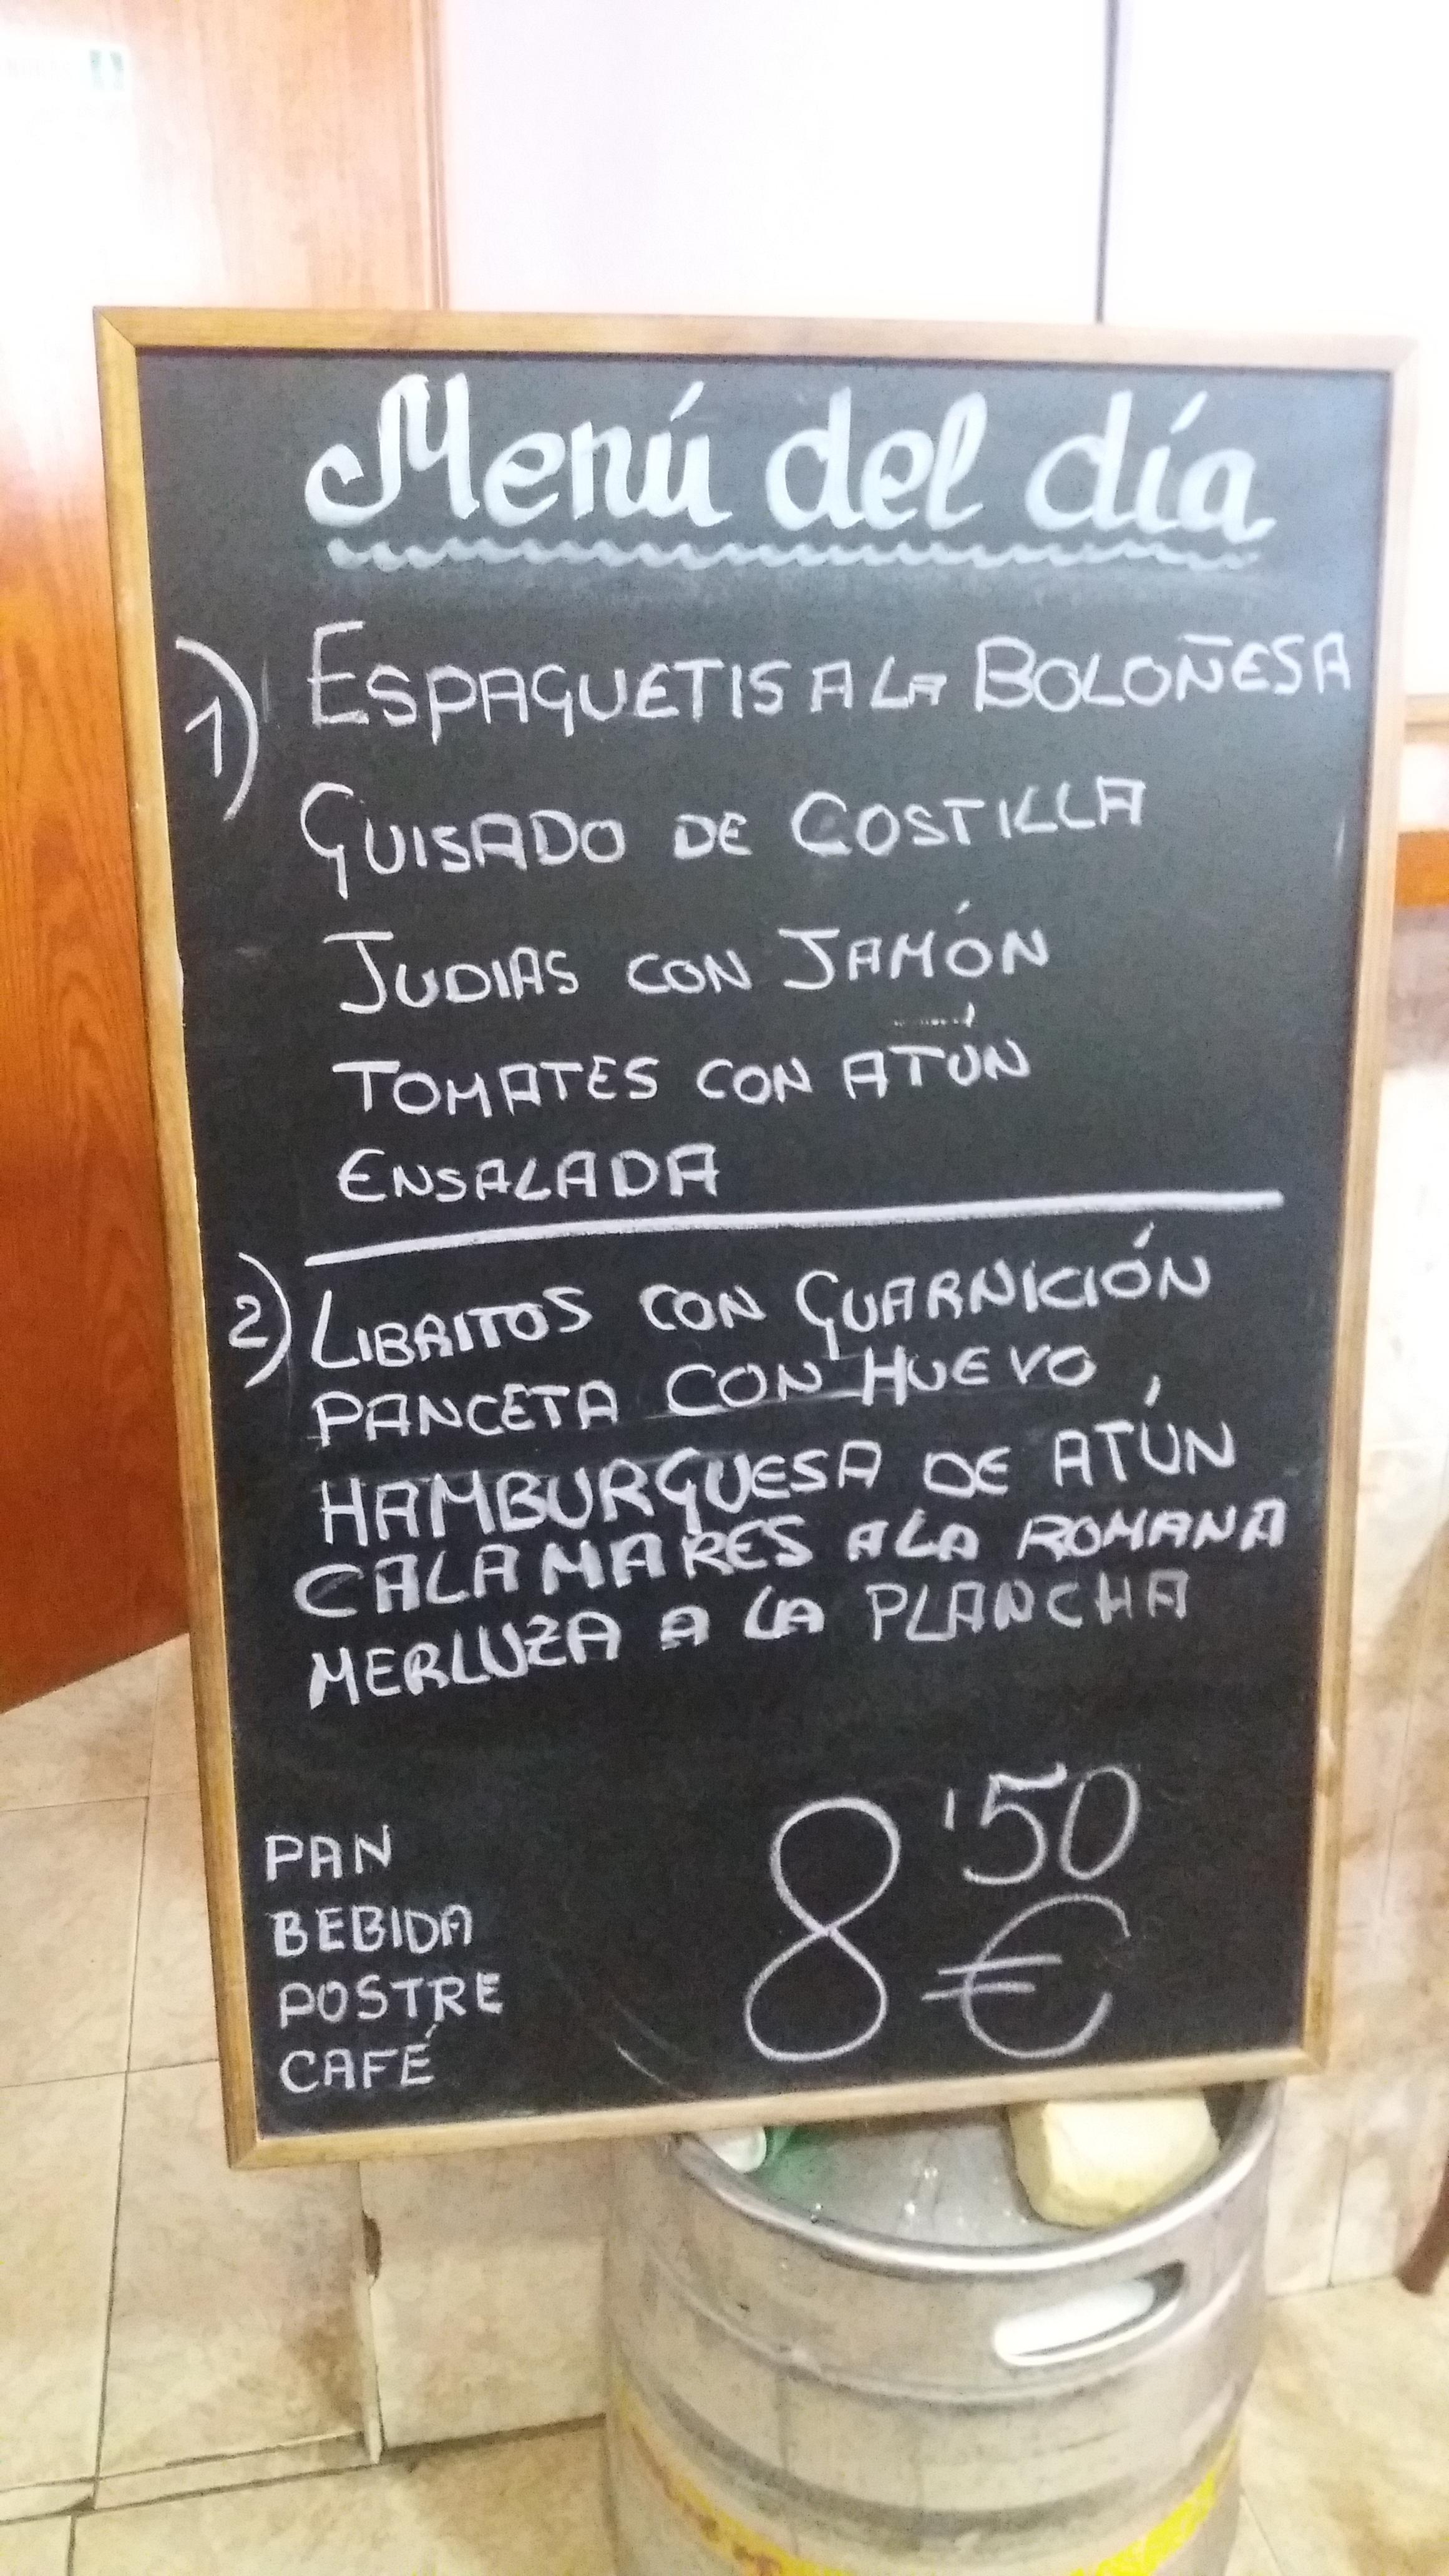 Menú del día
1) ESPAGUETIS A LA BOLOÑESA
GUISADO DE COSTILLA
JUDIAS CON JAMÓN
TOMATES CON ATÚN
ENSALADA
2) LIBRITOS CON GUARNICIÓN
PANCETA CON HUEVO
HAMBURGUESA DE ATÚN
CALAMARES A LA ROMANA
MERLUZA A LA PLANCHA
PAN
BEBIDA
POSTRE
CAFÉ
8'50
€